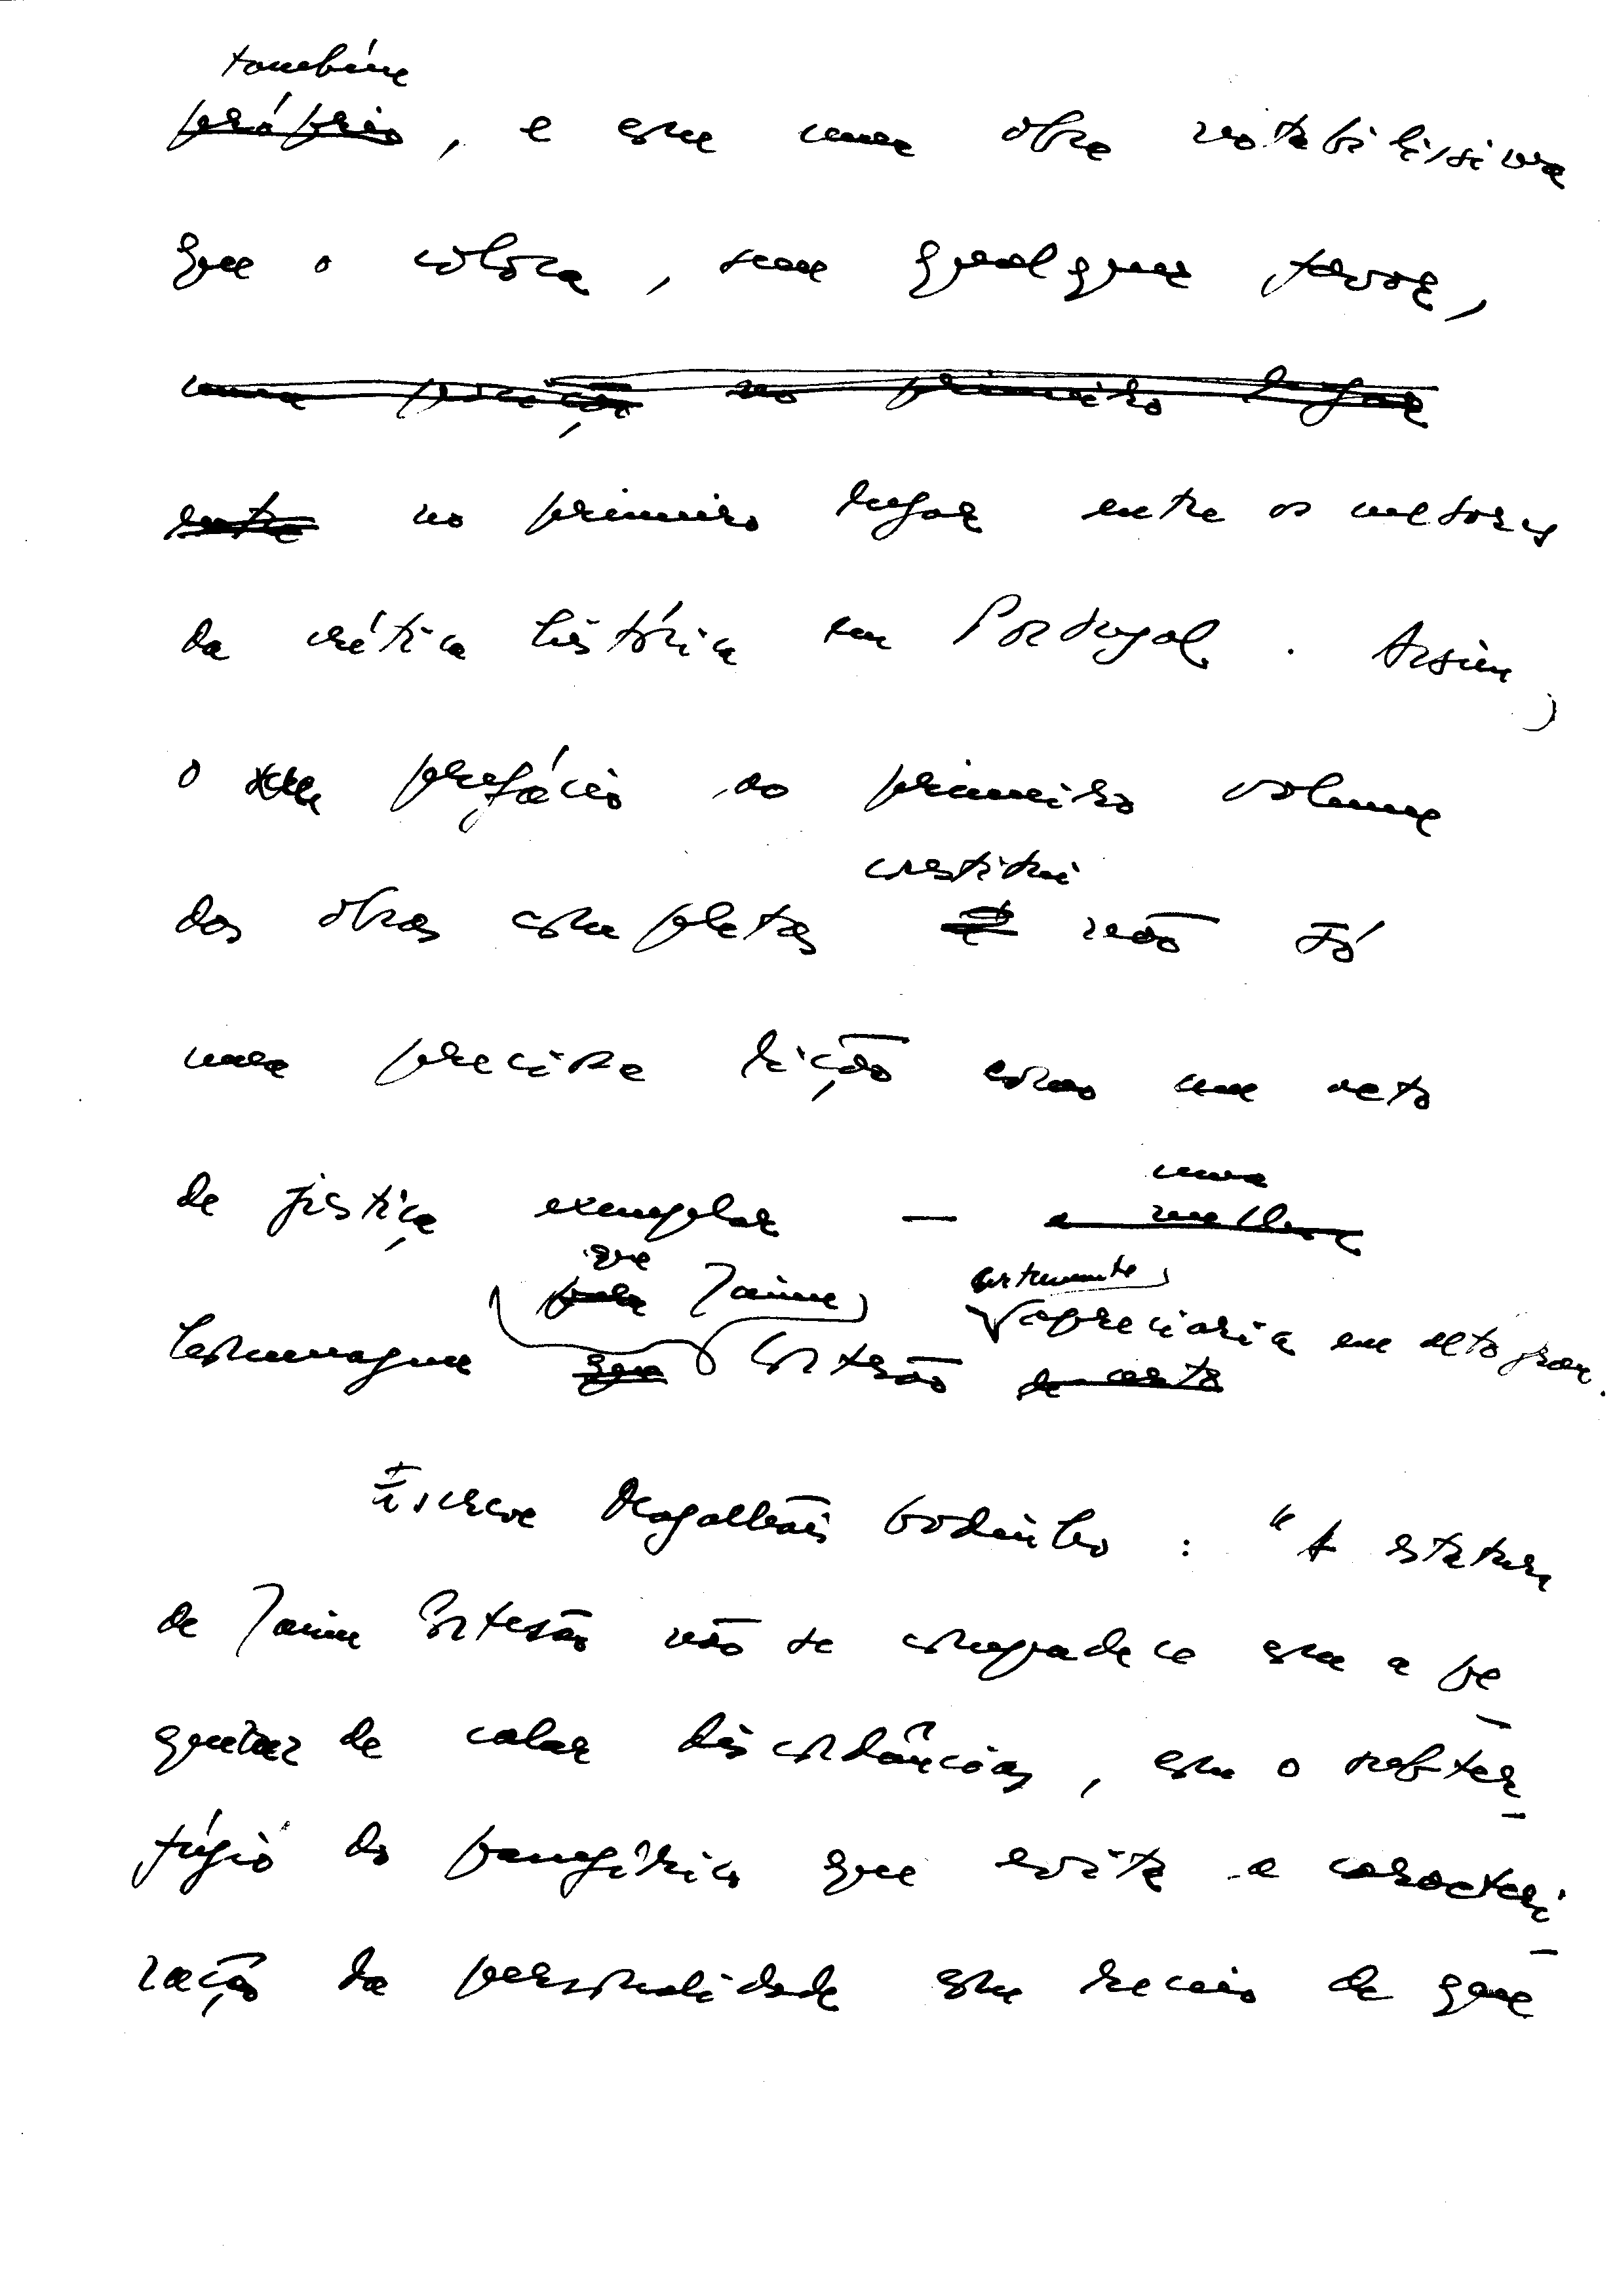 também
próprio, e com uma obra notabilíssima
que o coloca, sem qualquer favor,
uma posição no primeiro lugar
entre no primeiro lugar entre os mestres
da crítica histórica em Portugal. Assim,
o seu prefácio ao primeiro volume
constitui
das obras completas é não só
uma precisa lição como um acto
uma
de justiça exemplar — a melhor
que Jaime certamente,
pela
homenagem que Cortesão de certo apreciaria em alto grau.
Escreve Magalhães Godinho: "A estatura
de Jaime Cortesão não se compadece com a pe
quenez de calar discordâncias, com o subter
fúgio do panegírico que evita a caracteri
zação da personalidade com receio de que